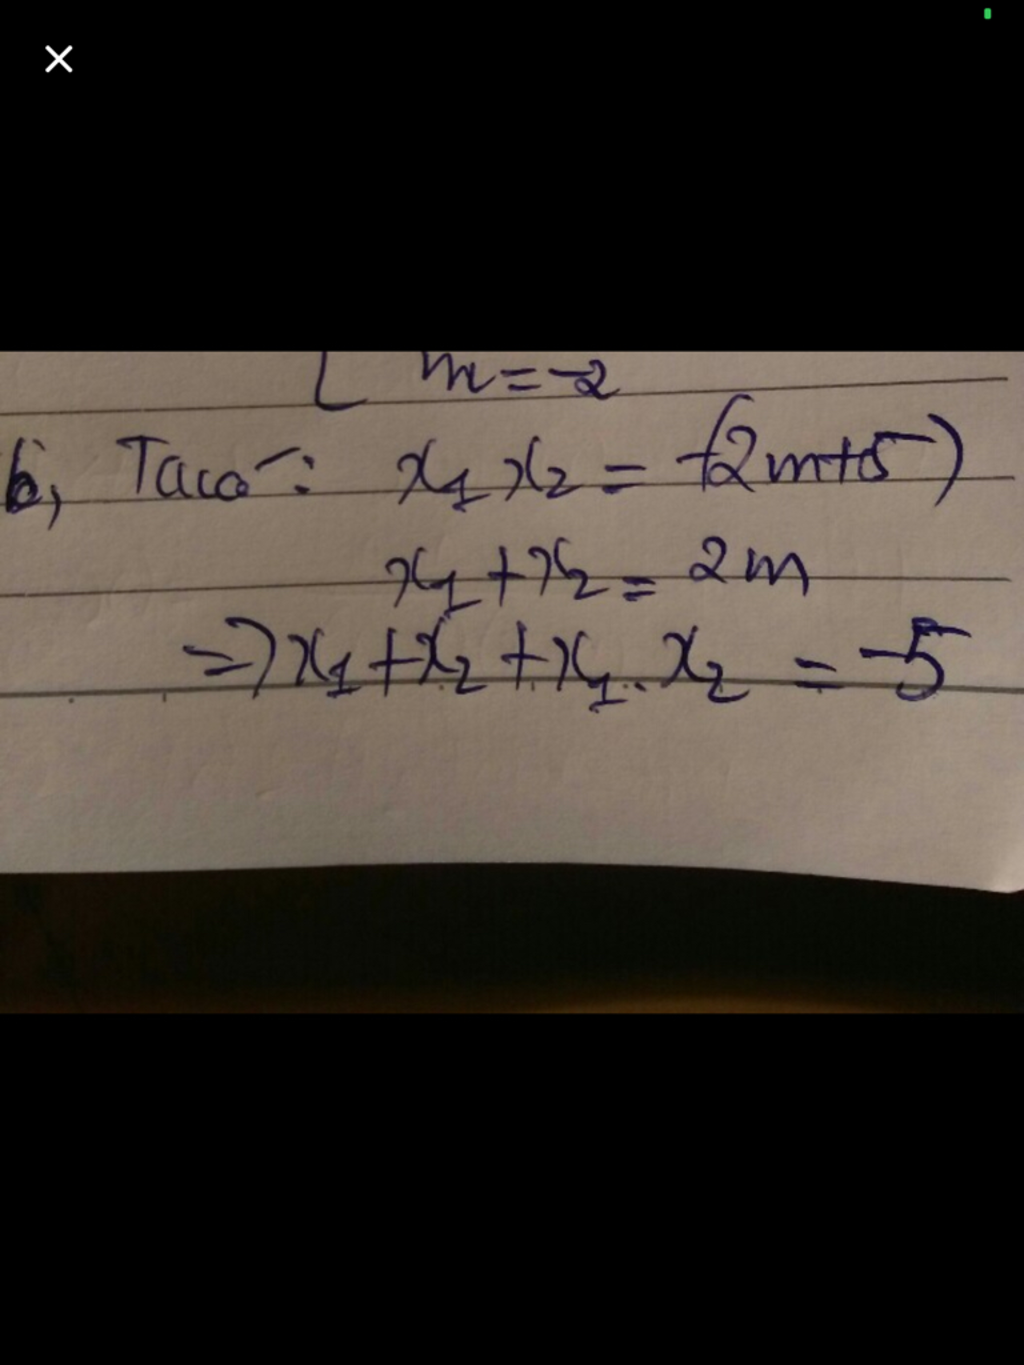 [ m = -2
b, Ta có: x₁x₂ = -(2m+5)
x₁ + x₂ = 2m
=> x₁ + x₂ + x₁.x₂ = -5